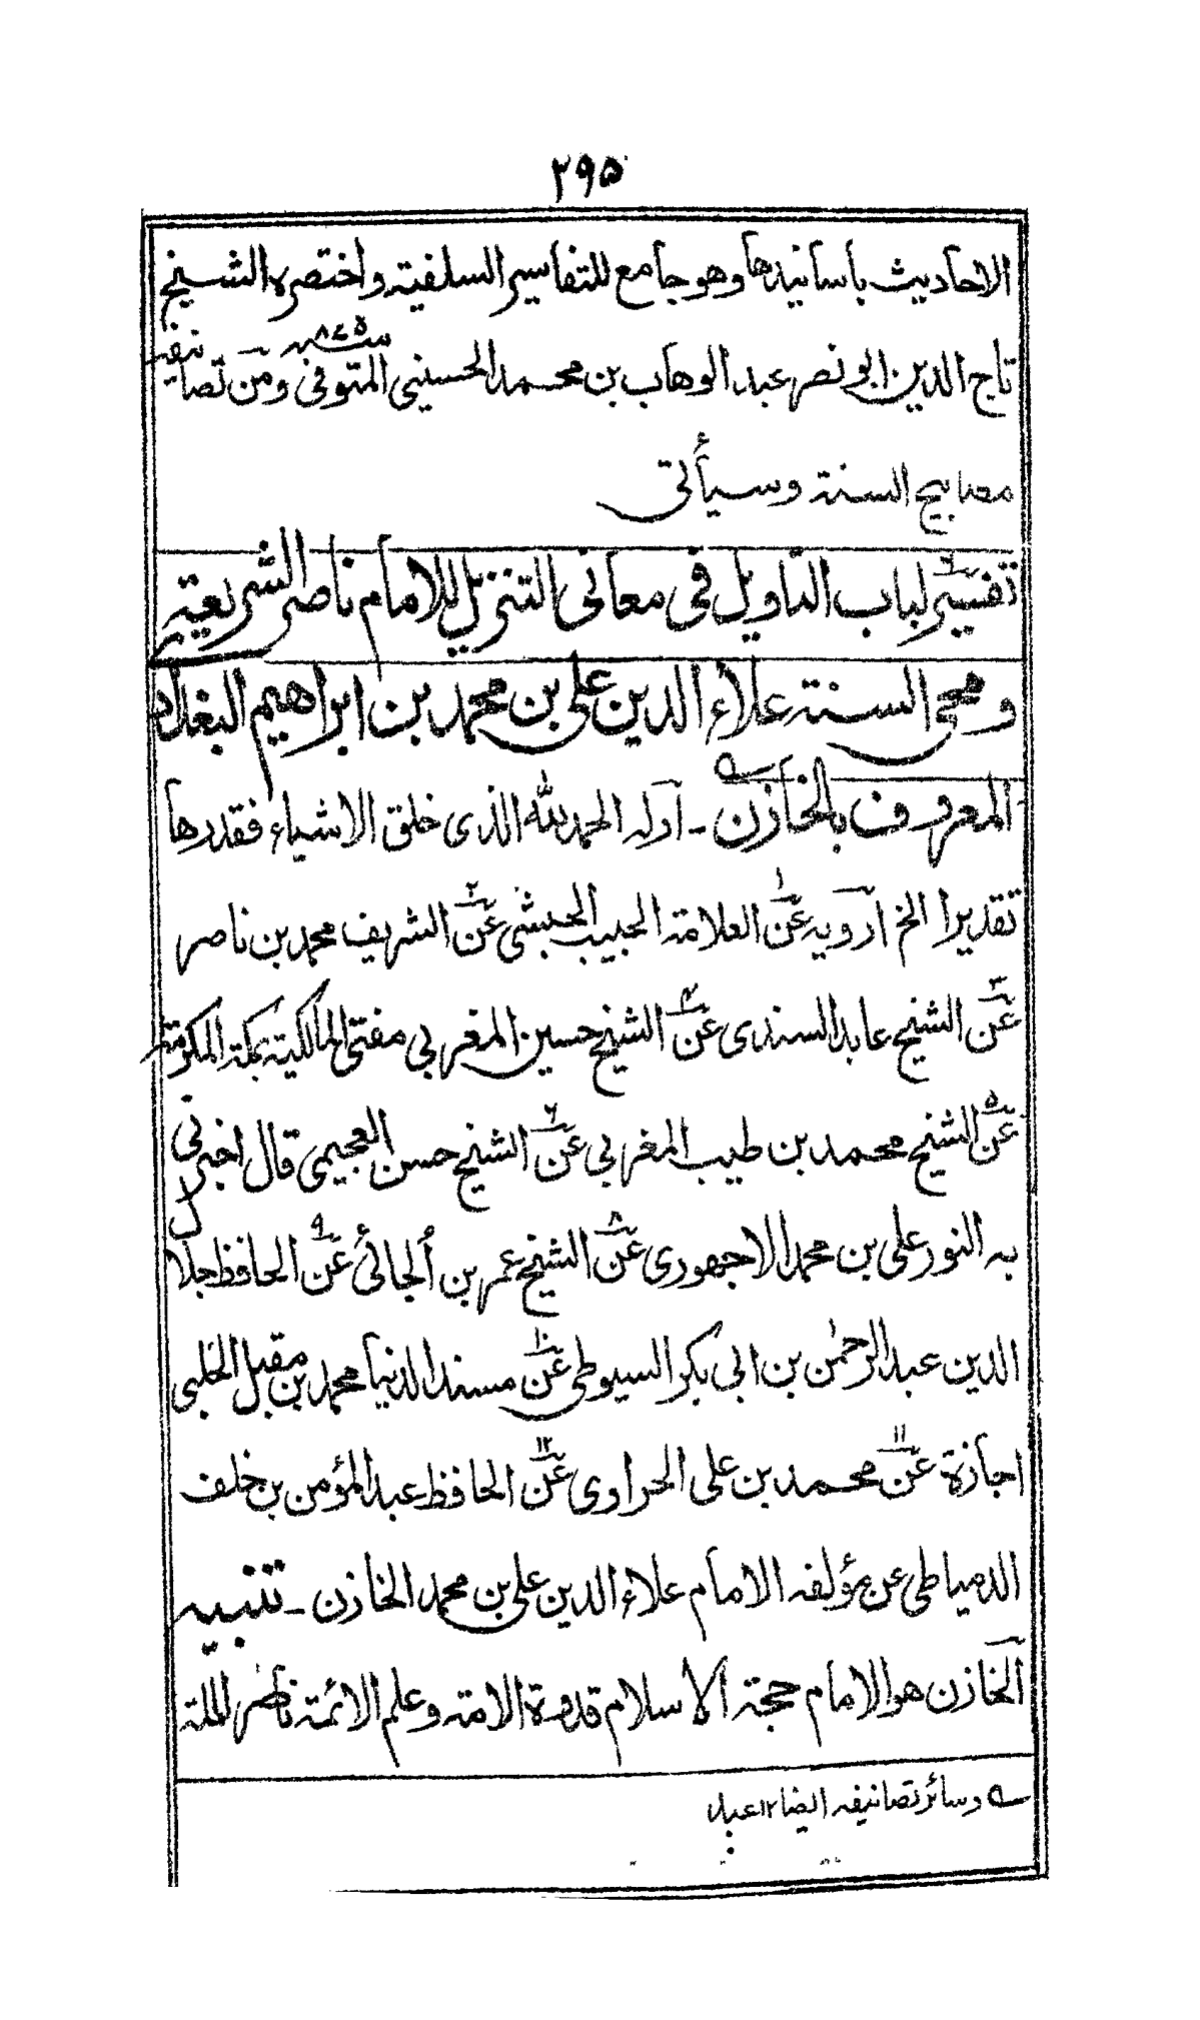 ۲۹۵
الاحاديث بأسانيدها وهو جامع للتفاسير السلفية واختصره الشيخ
تاج الدين ابو نصر عبد الوهاب بن محمد الحسيني المتوفى سنة ۸۷۵ ـ ومن تصانيفه
مصابيح السنة وسيأتى
تفسير لباب التاويل فى معانى التنزيل للامام ناصر الشريعة
ومحى السنة علاء الدين على بن محمد بن ابراهيم البغدادى
المعروف بالخازن ـ اوله الحمد لله الذى خلق الاشياء فقدرها
تقديرا الخ ارويه عن ۱ العلامة الحبيب الحبشى عن ۲ الشريف محمد بن ناصر
عن ۳ الشيخ عابد السندى عن ۴ الشيخ حسين المغربي مفتى المالكية بمكة المكرمة
عن ۵ الشيخ محمد بن طيب المغربي عن ۶ الشيخ حسن العجيمى قال اخبرنى
به النور على بن محمد الاجهورى عن ۸ الشيخ عمر بن ألجائى عن ۹ الحافظ جلال
الدين عبد الرحمن بن ابى بكر السيوطى عن ۱۰ مسند الدنيا محمد بن مقبل الحلبى
اجازة عن ۱۱ محمد بن على الحراوى عن ۱۲ الحافظ عبد المؤمن بن خلف
الدمياطى عن مؤلفه الامام علاء الدين على بن محمد الخازن ـ تنبيه
الخازن هو الامام حجة الاسلام قدوة الامة وعلم الائمة ناصر الملة
ے وسائر تصانيفه ايضا ۱۲ عبد